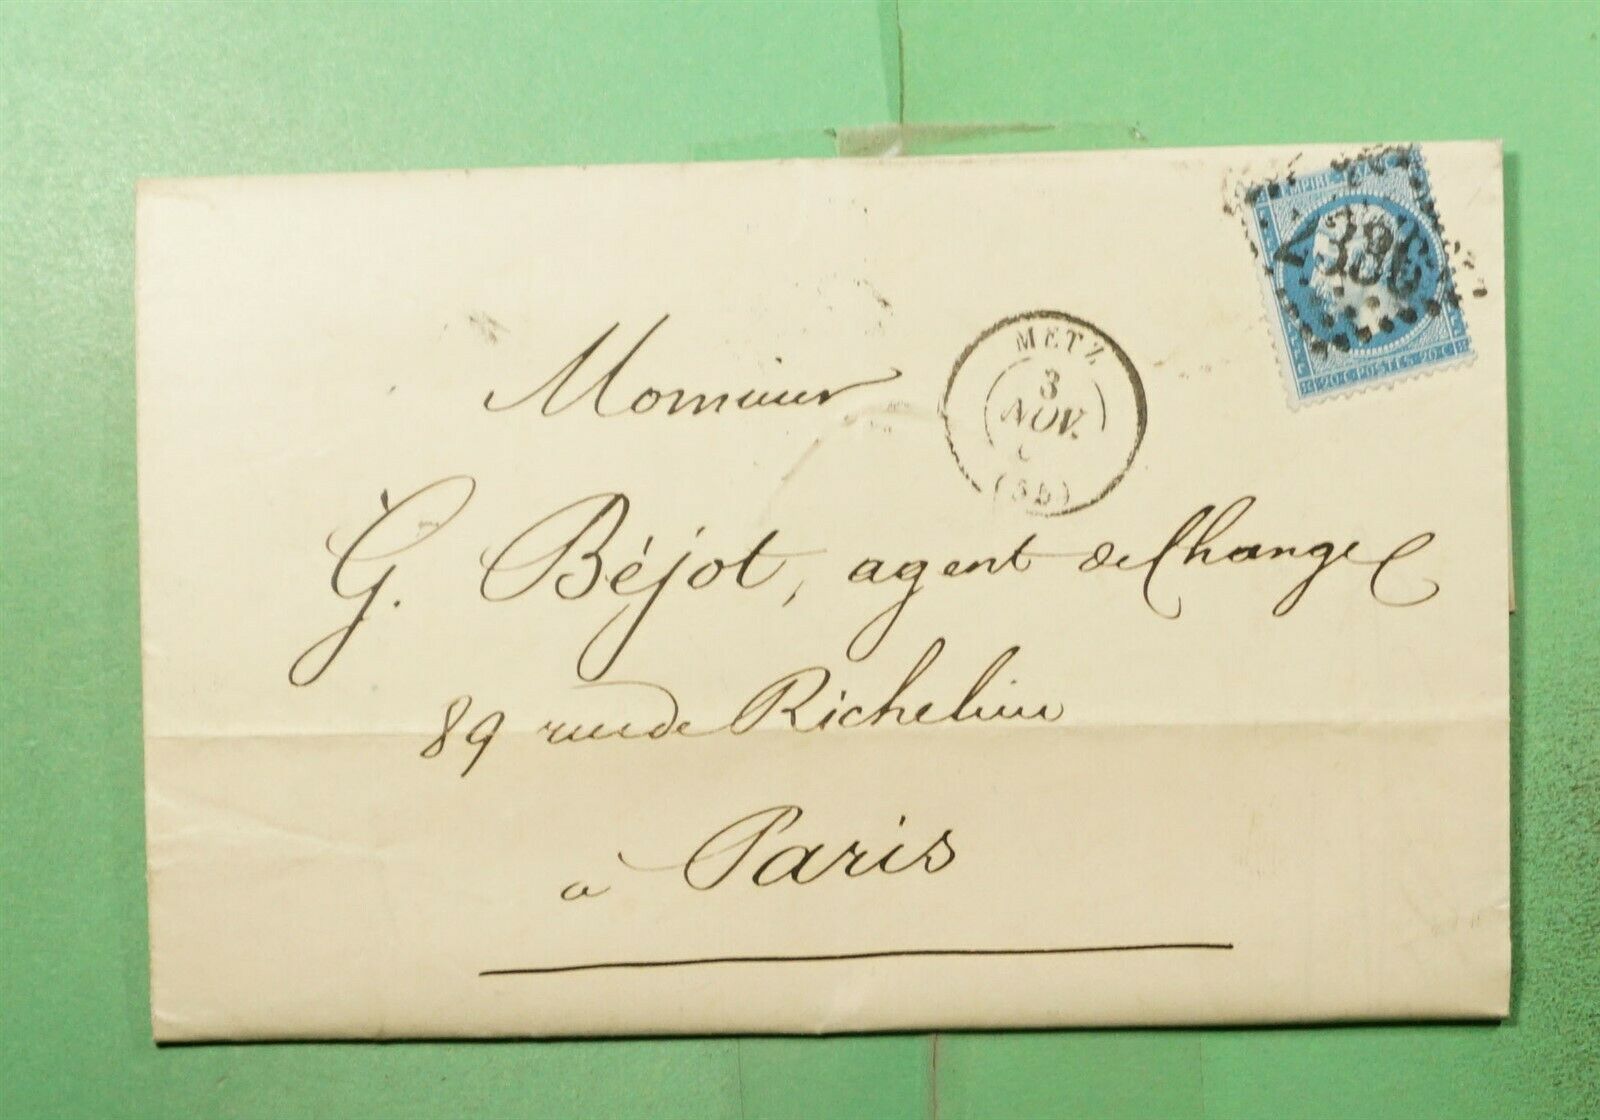 EMPIRE FRANC
2386
20 C POSTES 20 C
METZ
3
NOV.
(55)
Monsieur
G. Béjot, agent de Change
89 rue de Richelieu
à Paris